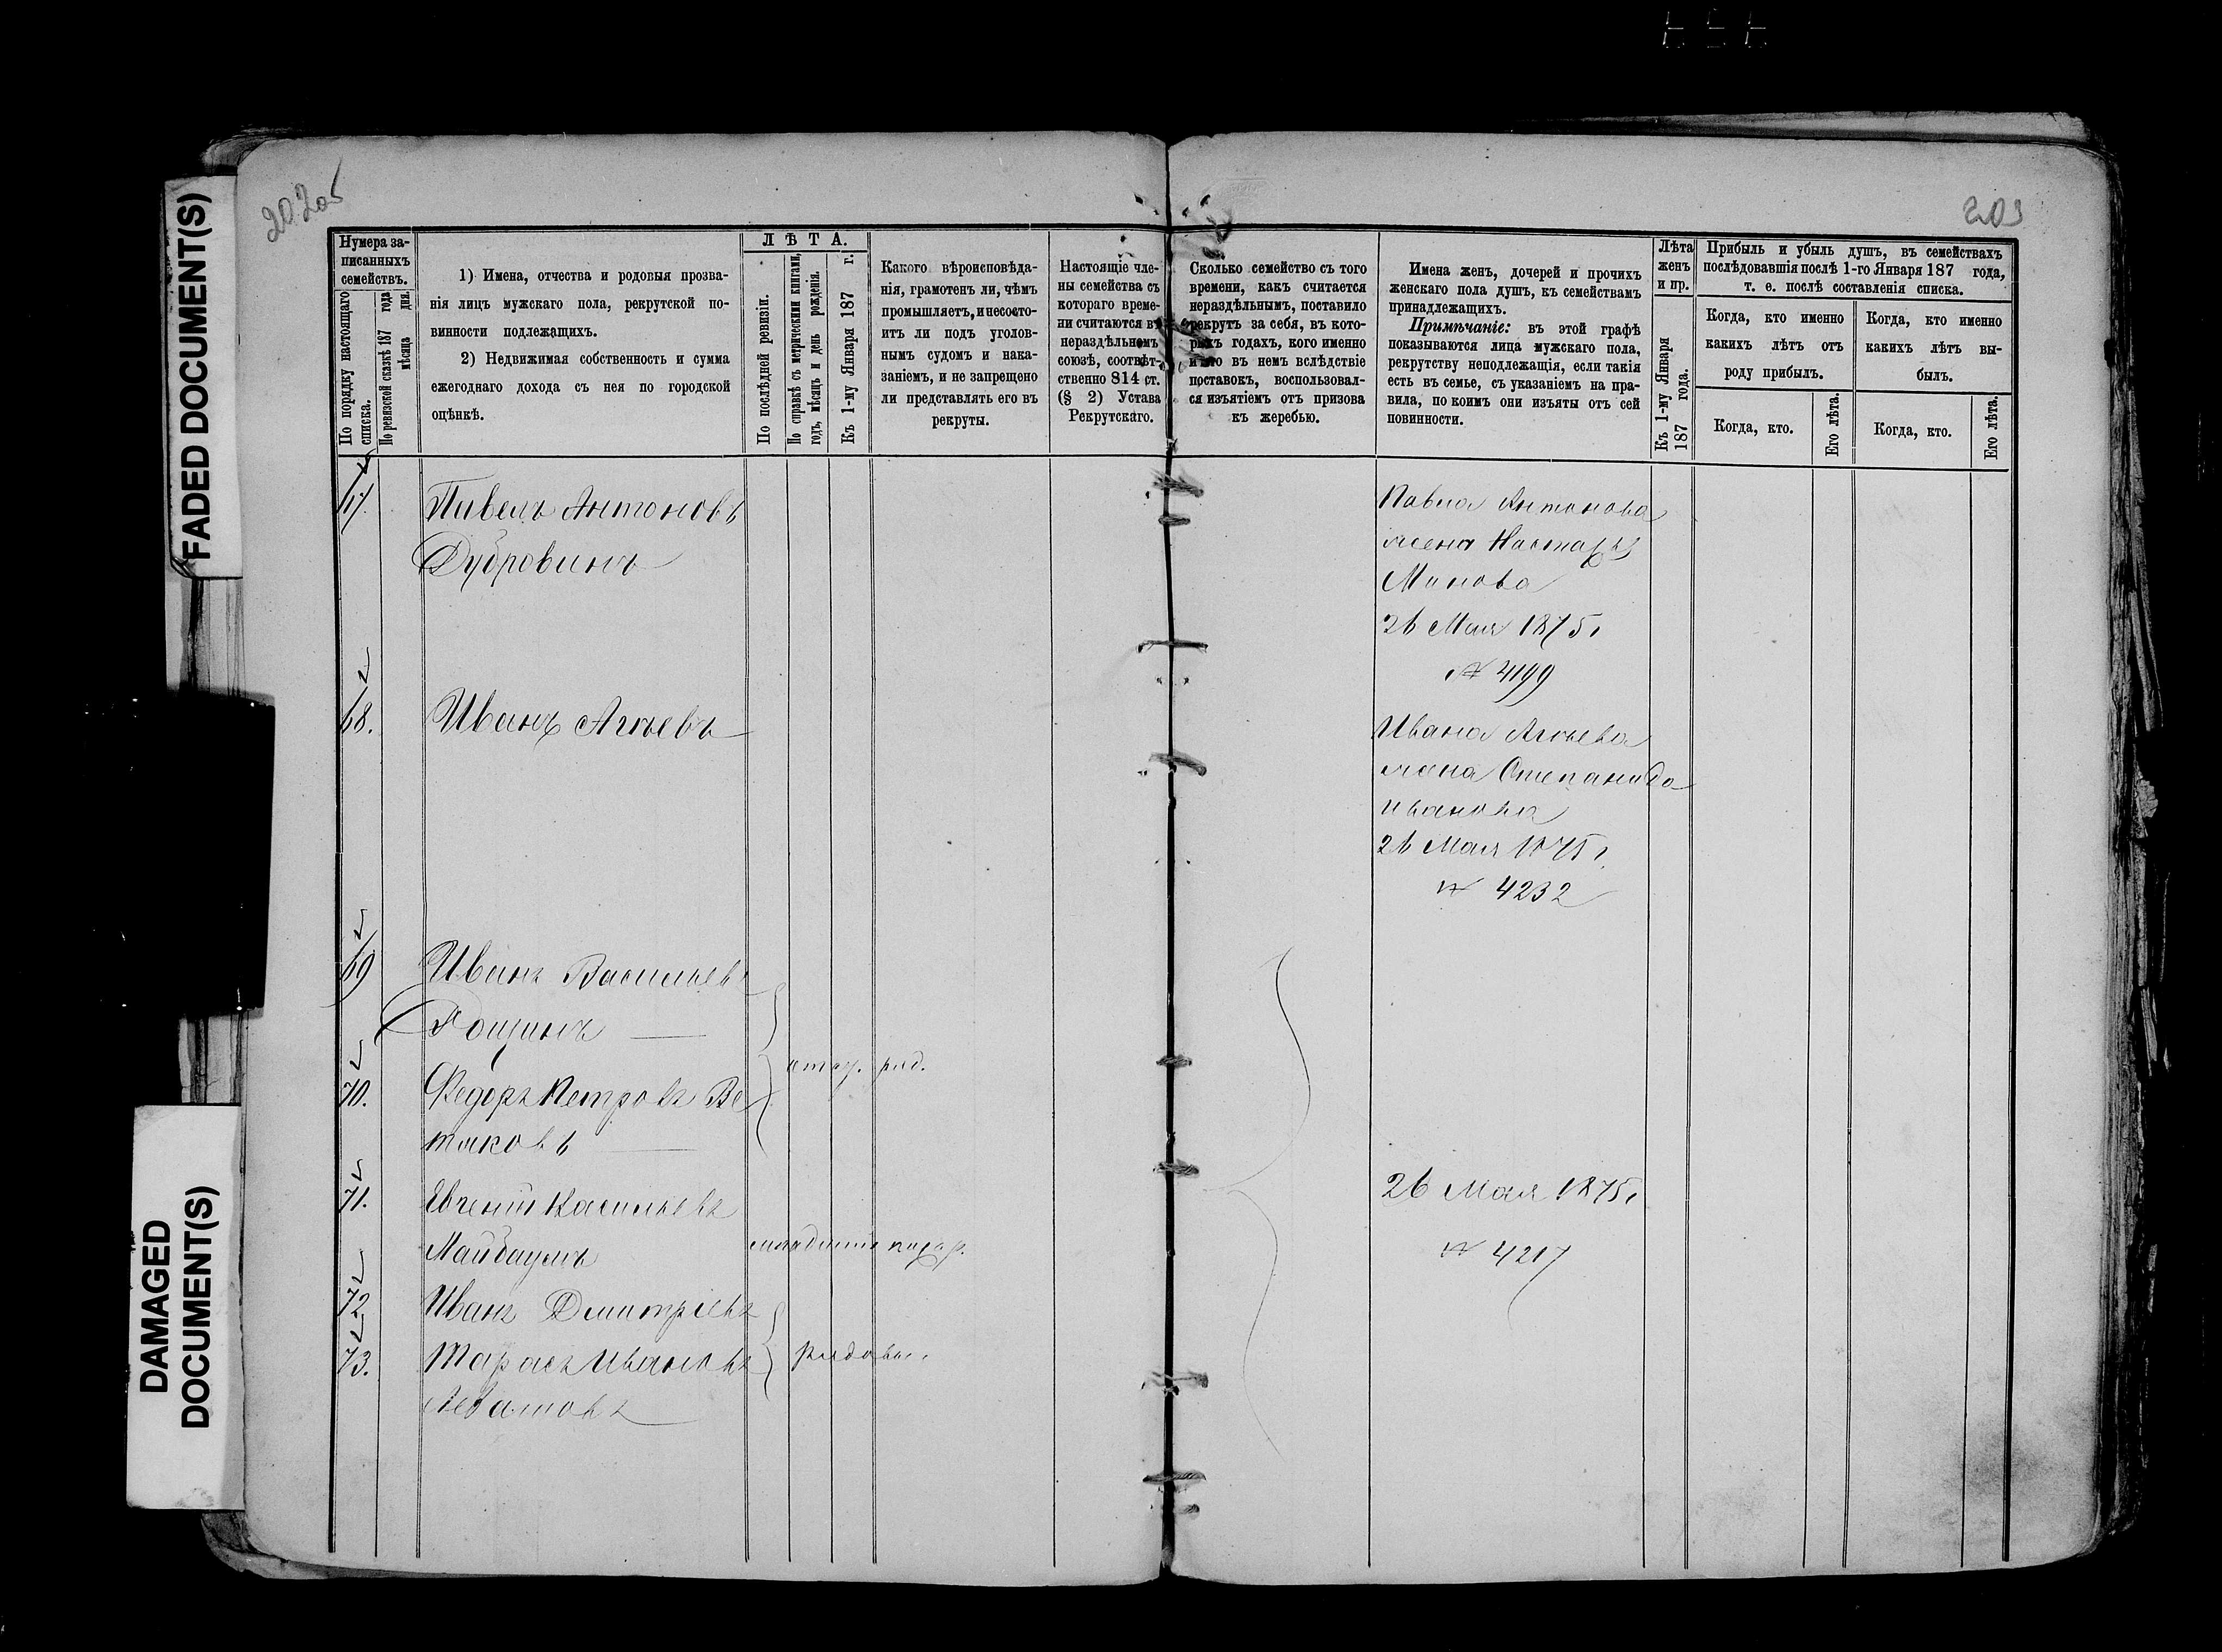 FADED DOCUMENT(S)
DAMAGED
DOCUMENT(S)
203
Нумера за-
писанныхъ
семействъ.
По порядку настоящаго
списка.
По ревизской сказкѣ 187 года
мѣсяца дня.
1) Имена, отчества и родовыя прозва-
нія лицъ мужскаго пола, рекрутской по-
винности подлежащихъ.
2) Недвижимая собственность и сумма
ежегоднаго дохода съ нея по городской
оцѣнкѣ.
ЛѢТА.
По послѣдней ревизіи.
По справкѣ съ метрическими книгами,
годъ, мѣсяцъ и день рожденія.
Къ 1-му Января 187 г.
Какого вѣроисповѣда-
нія, грамотенъ ли, чѣмъ
промышляетъ, и несосто-
итъ ли подъ уголов-
нымъ судомъ и нака-
заніемъ, и не запрещено
ли представлять его въ
рекруты.
Настоящіе чле-
ны семейства съ
котораго време-
ни считаются въ
нераздѣльномъ
союзѣ, соотвѣт-
ственно 814 ст.
(§ 2) Устава
Рекрутскаго.
Сколько семейство съ того
времени, какъ считается
нераздѣльнымъ, поставило
рекрутъ за себя, въ кото-
рыхъ годахъ, кого именно
и кто въ немъ вслѣдствіе
поставокъ, воспользовал-
ся изъятіемъ отъ призова
къ жеребью.
Имена женъ, дочерей и прочихъ
женскаго пола душъ, къ семействамъ
принадлежащихъ.
Примѣчаніе: въ этой графѣ
показываются лица мужскаго пола,
рекрутству неподлежащія, если такія
есть въ семье, съ указаніемъ на пра-
вила, по коимъ они изъяты отъ сей
повинности.
Лѣта
женъ
и пр.
Къ 1-му Января
187 года.
Прибыль и убыль душъ, въ семействахъ
послѣдовавшія послѣ 1-го Января 187 года,
т. е. послѣ составленія списка.
Когда, кто именно
какихъ лѣтъ отъ
роду прибылъ.
Когда, кто именно
какихъ лѣтъ вы-
былъ.
Когда, кто.
Его лѣта.
Когда, кто.
Его лѣта.
67. Павелъ Антоновъ
Дубровинъ
Павла Антонова
жена Настасья
26 Мая 1875 г
№ 4199
68. Иванъ
Ивана
жена Степанида
Иванова
26 Мая 1875 г.
№ 4232
69 Иванъ Васильевъ
Рощинъ
70. Федоръ Петровъ Ве
таковъ
отст. ряд.
71. Евгеній Васильевъ
Майбаумъ
младшій
26 Мая 1875 г
№ 4217
72 Иванъ Дмитріевъ
73. Тарасъ Ивановъ
рядовые